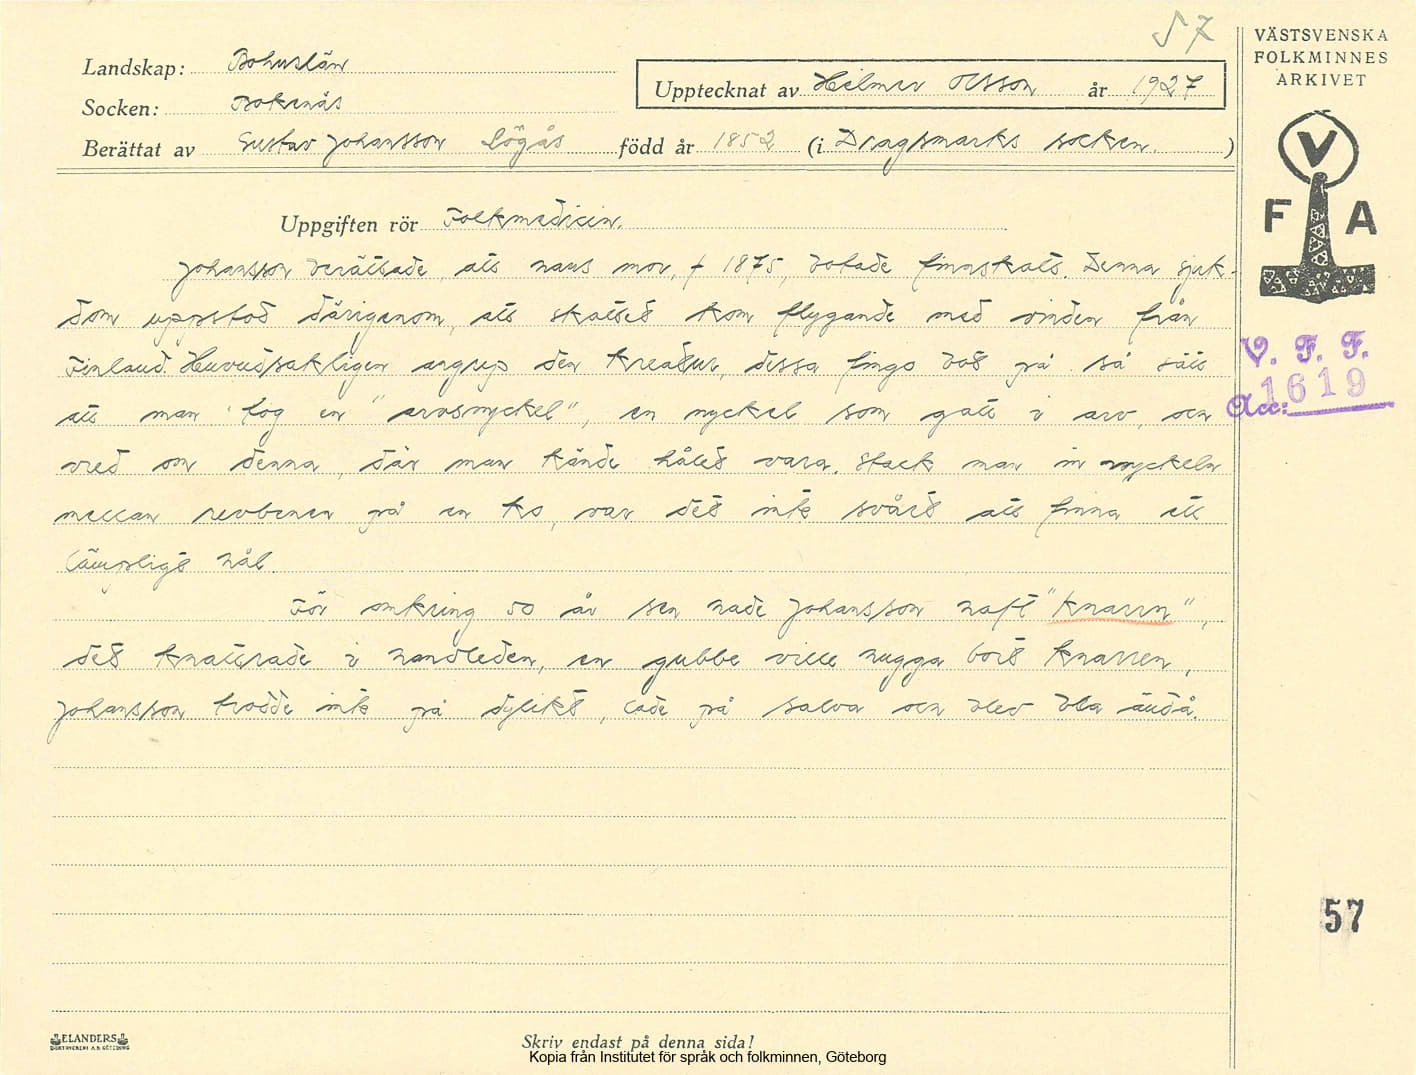 57
Landskap: Bohuslän
Socken: Bokenäs
Upptecknat av Hilmer Olsson år 1927
Berättat av Gustav Johansson Lögås född år 1852 (i Dragsmarks socken. )
Uppgiften rör Folkmedicin.
Johansson berättade, att hans mor, † 1875, botade finnskott. Denna sjuk-
dom uppstod därigenom, att skottet kom flygande med vinden från
Finland. Huvudsakligen angrep den kreatur, dessa fingo bot på så sätt
att man tog en "arvsnyckel", en nyckel som gått i arv, och
vred om denna, där man kände hålet vara. Stack man in nyckeln
mellan revbenen på en ko, var det inte svårt att finna ett
lämpligt hål.
För omkring 50 år sen hade Johansson haft "knarrn",
det knattrade i handleden, en gubbe ville hugga bort knarren,
Johansson trodde inte på dylikt, lade på salva och blev bra ändå.
VÄSTSVENSKA
FOLKMINNES
ARKIVET
V
F A
V. F. F.
Acc: 1619
57
ELANDERS
BOKTRYCKERI A.B. GÖTEBORG
Skriv endast på denna sida!
Kopia från Institutet för språk och folkminnen, Göteborg